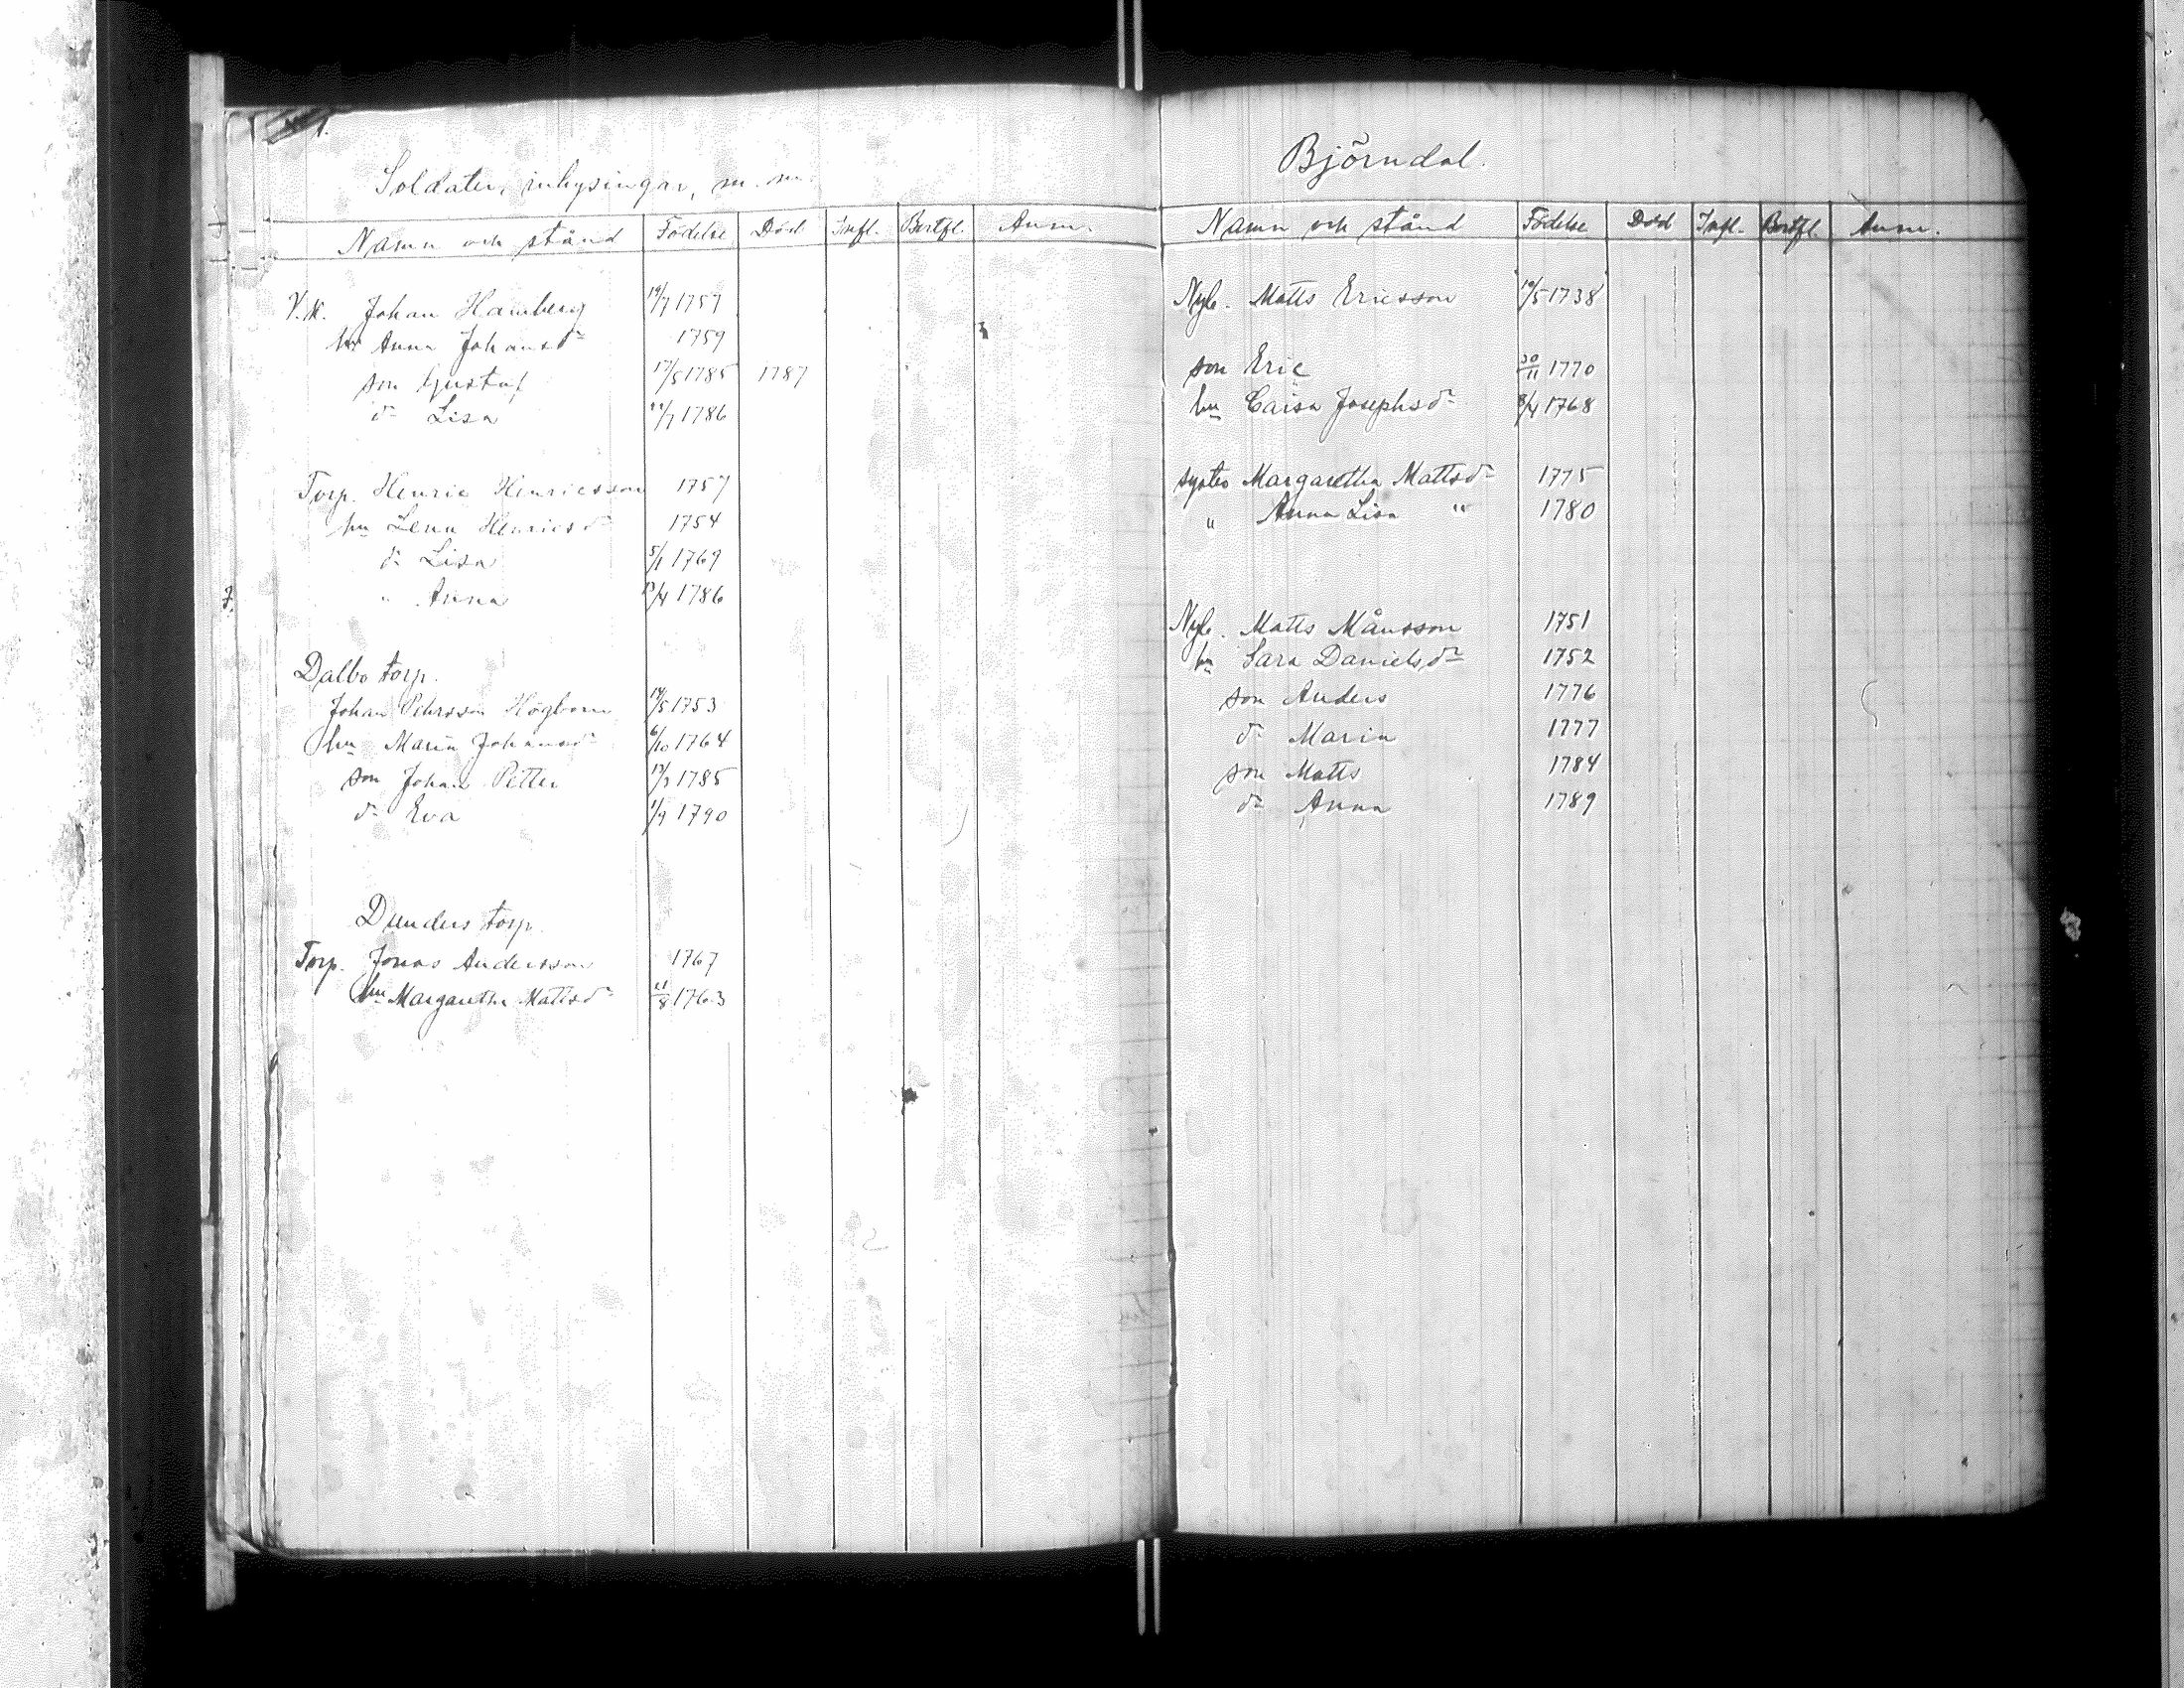 1.
Soldater, inhysingar, m. m.
Namn och stånd Födelse Död Infl. Bortfl. Anm.
V.K. Johan Hamberg 19/7 1757
hu Anna Johansdr 1759
son Gustaf 17/5 1785 1787
dr Lisa 22/7 1786
Torp. Henric Henricsson 1757
hu Lena Henricsdr 1754
dr Lisa 5/1 1769
" Anna 13/4 1786
Dalbo torp.
Johan Pehrsson Högbom 14/5 1753
hu Maria Johansdr 6/10 1764
son Johan Petter 17/3 1785
dr Eva 1/9 1790
Dunders torp.
Torp. Jonas Andersson 1767
hu Margaretha Mattsdr 21/8 1763
Björndal.
Namn och stånd Födelse Död Infl. Bortfl. Anm.
Nyb. Matts Ericsson 19/5 1738
son Eric 30/11 1770
hu Caisa Josephsdr 8/4 1768
syster Margaretha Mattsdr 1775
" Anna Lisa " 1780
Nyb. Matts Månsson 1751
hu Sara Danielsdr 1752
son Anders 1776
dr Maria 1777
son Matts 1784
dr Anna 1789